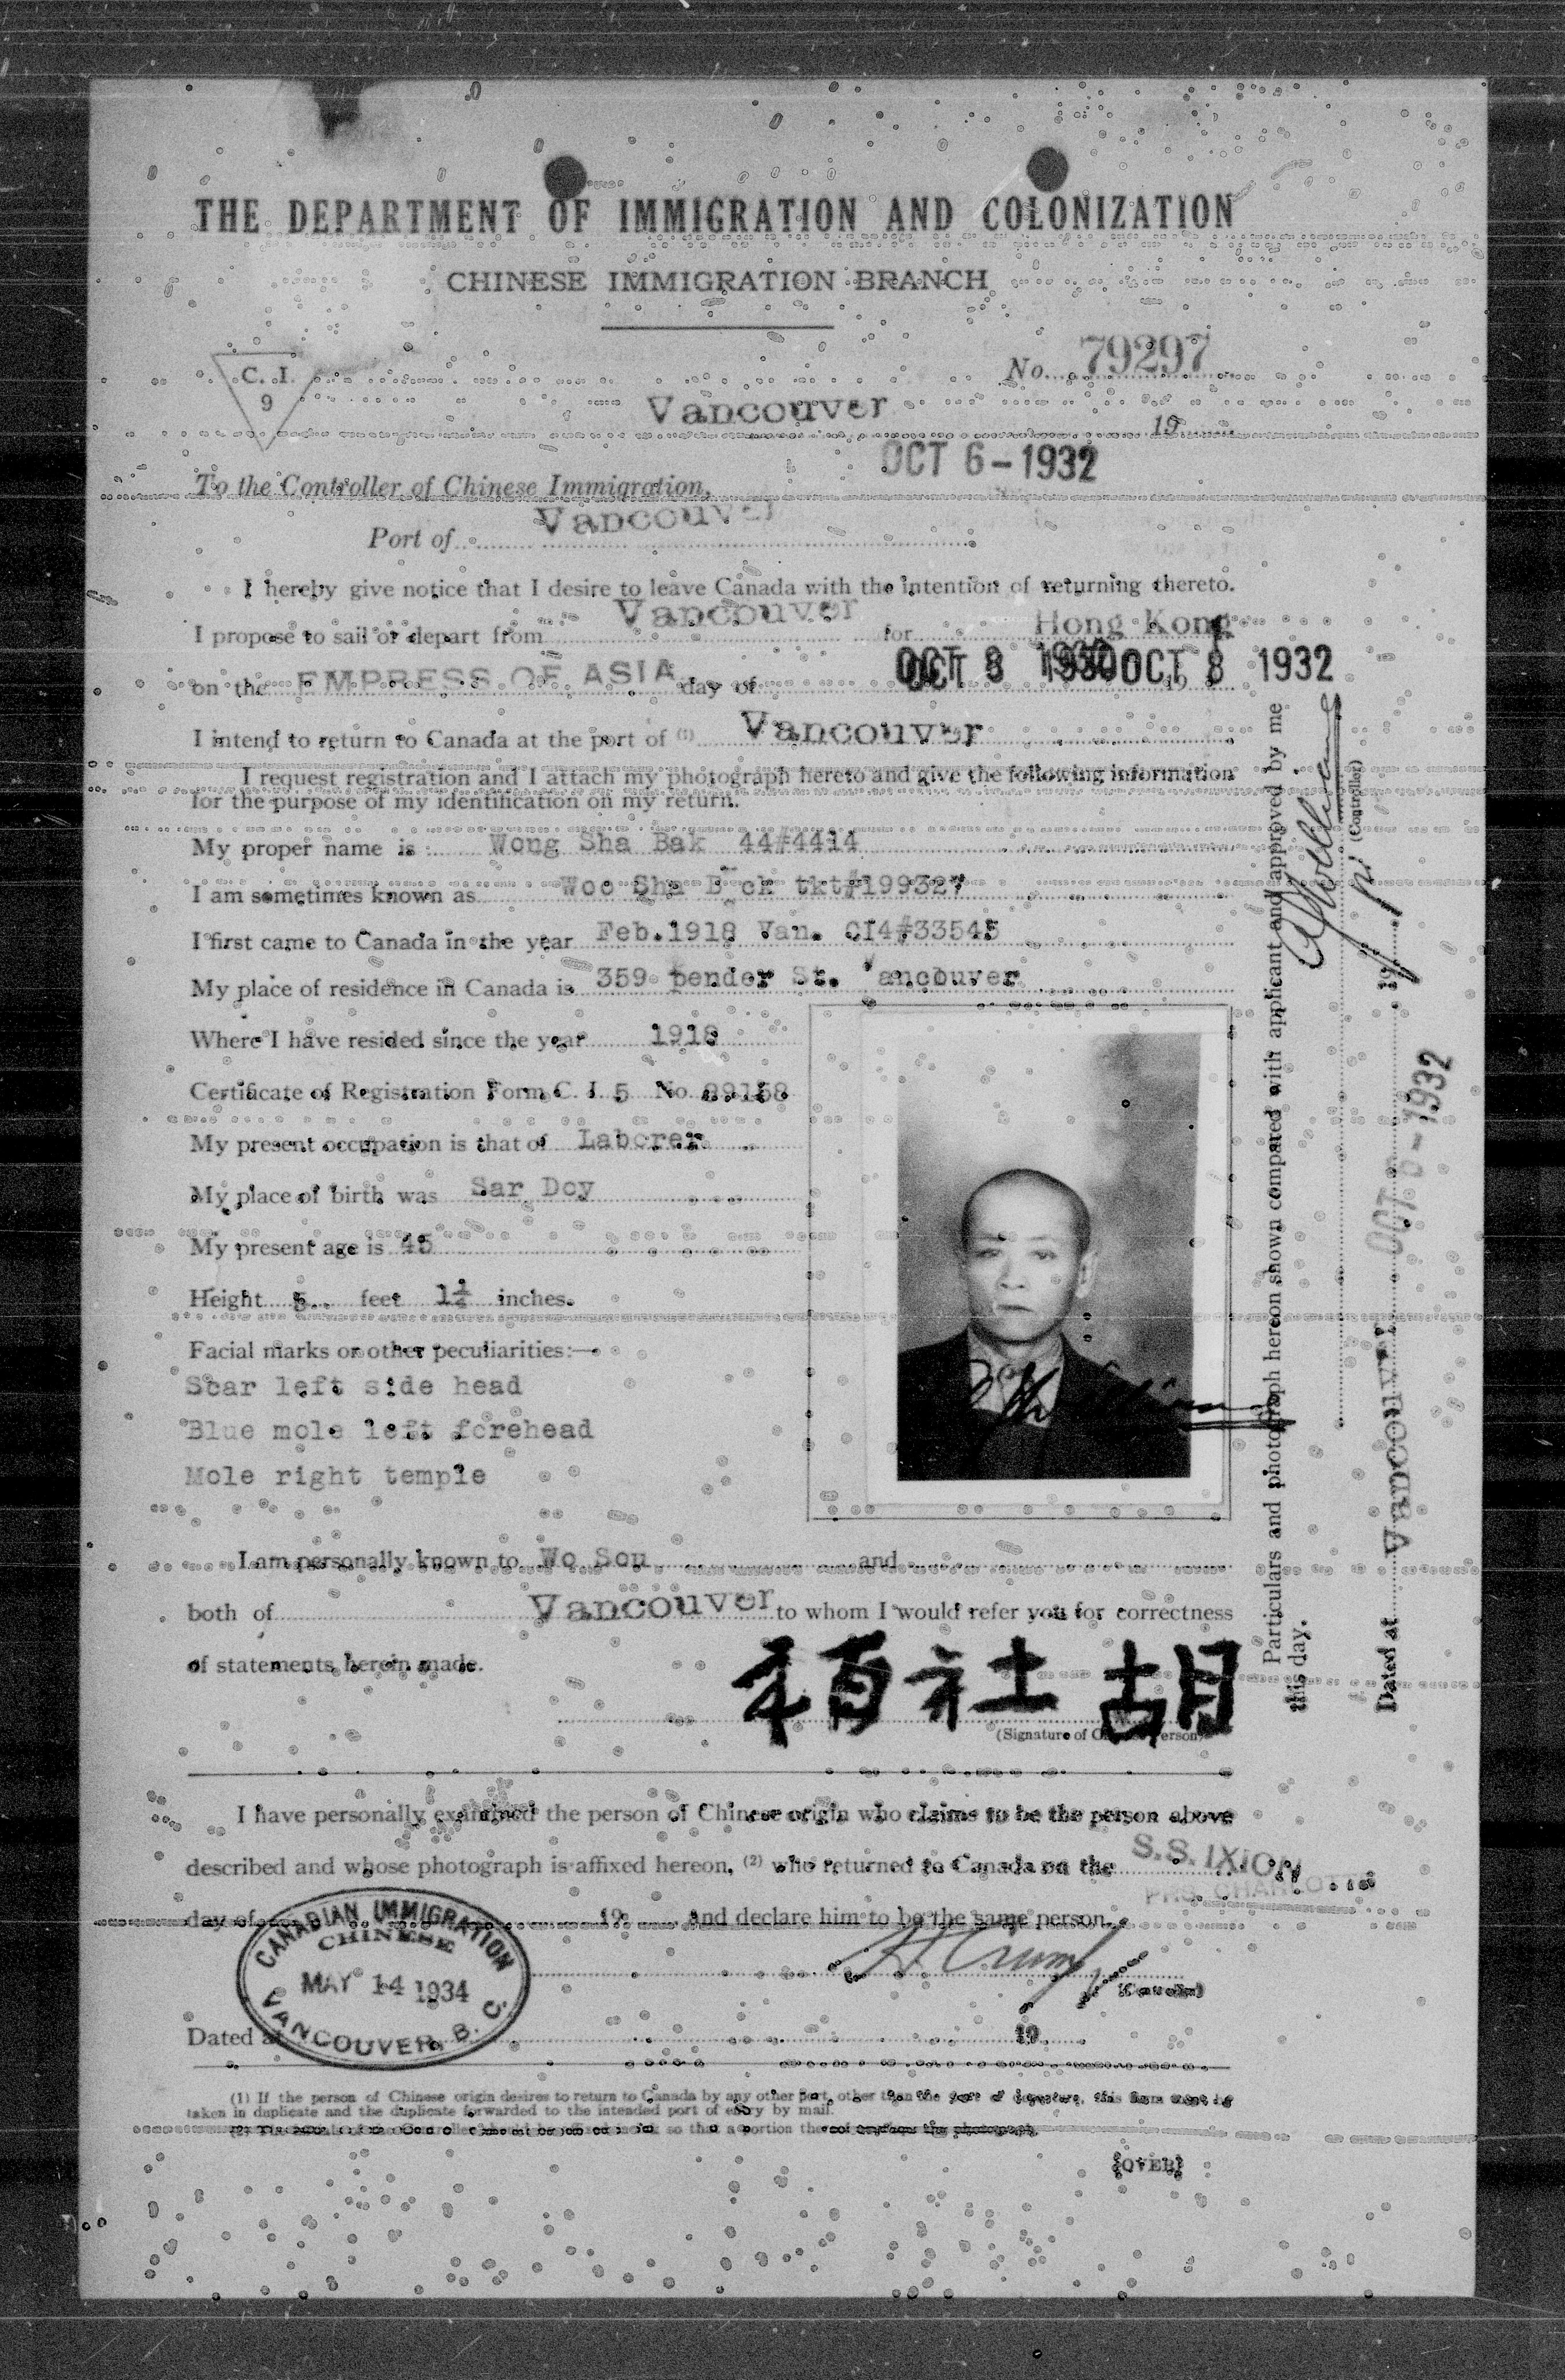 THE DEPARTMENT OF IMMIGRATION AND COLONIZATION
CHINESE IMMIGRATION BRANCH
C. I.
9
No. 79297
Vancouver
19
OCT 6-1932
To the Controller of Chinese Immigration,
Port of Vancouver
I hereby give notice that I desire to leave Canada with the intention of returning thereto.
I propose to sail or depart from Vancouver for Hong Kong
on the EMPRESS OF ASIA day of OCT 8 OCT 8 1932
I intend to return to Canada at the port of (1) Vancouver
I request registration and I attach my photograph hereto and give the following information
for the purpose of my identification on my return.
My proper name is: Wong Sha Bak 44#4414
I am sometimes known as Woo Sha B ck tkt#199327
I first came to Canada in the year Feb.1918 Van. CI4#33545
My place of residence in Canada is 359 pender St. Vancouver
Where I have resided since the year 1918
Certificate of Registration Form C. I. 5 No.
My present occupation is that of Laborer
My place of birth was Sar Doy
My present age is 45
Height 5 feet 1¼ inches.
Facial marks or other peculiarities:—
Scar left side head
Blue mole left forehead
Mole right temple
I am personally known to Wo Sou and
both of Vancouver to whom I would refer you for correctness
of statements herein made.
栢社胡
(Signature of Chinese Person)
Particulars and photograph hereon shown compared with applicant and approved by me
this day.
(Controller)
Dated at Vancouver OCT 6-1932 19
I have personally examined the person of Chinese origin who claims to be the person above
described and whose photograph is affixed hereon, (2) who returned to Canada on the S.S. IXION
day of 19 And declare him to be the same person.
CANADIAN IMMIGRATION
CHINESE
MAY 14 1934
VANCOUVER, B. C.
(Controller)
Dated at 19
(1) If the person of Chinese origin desires to return to Canada by any other port, other than the port of departure, this form must be
taken in duplicate and the duplicate forwarded to the intended port of entry by mail.
(OVER)